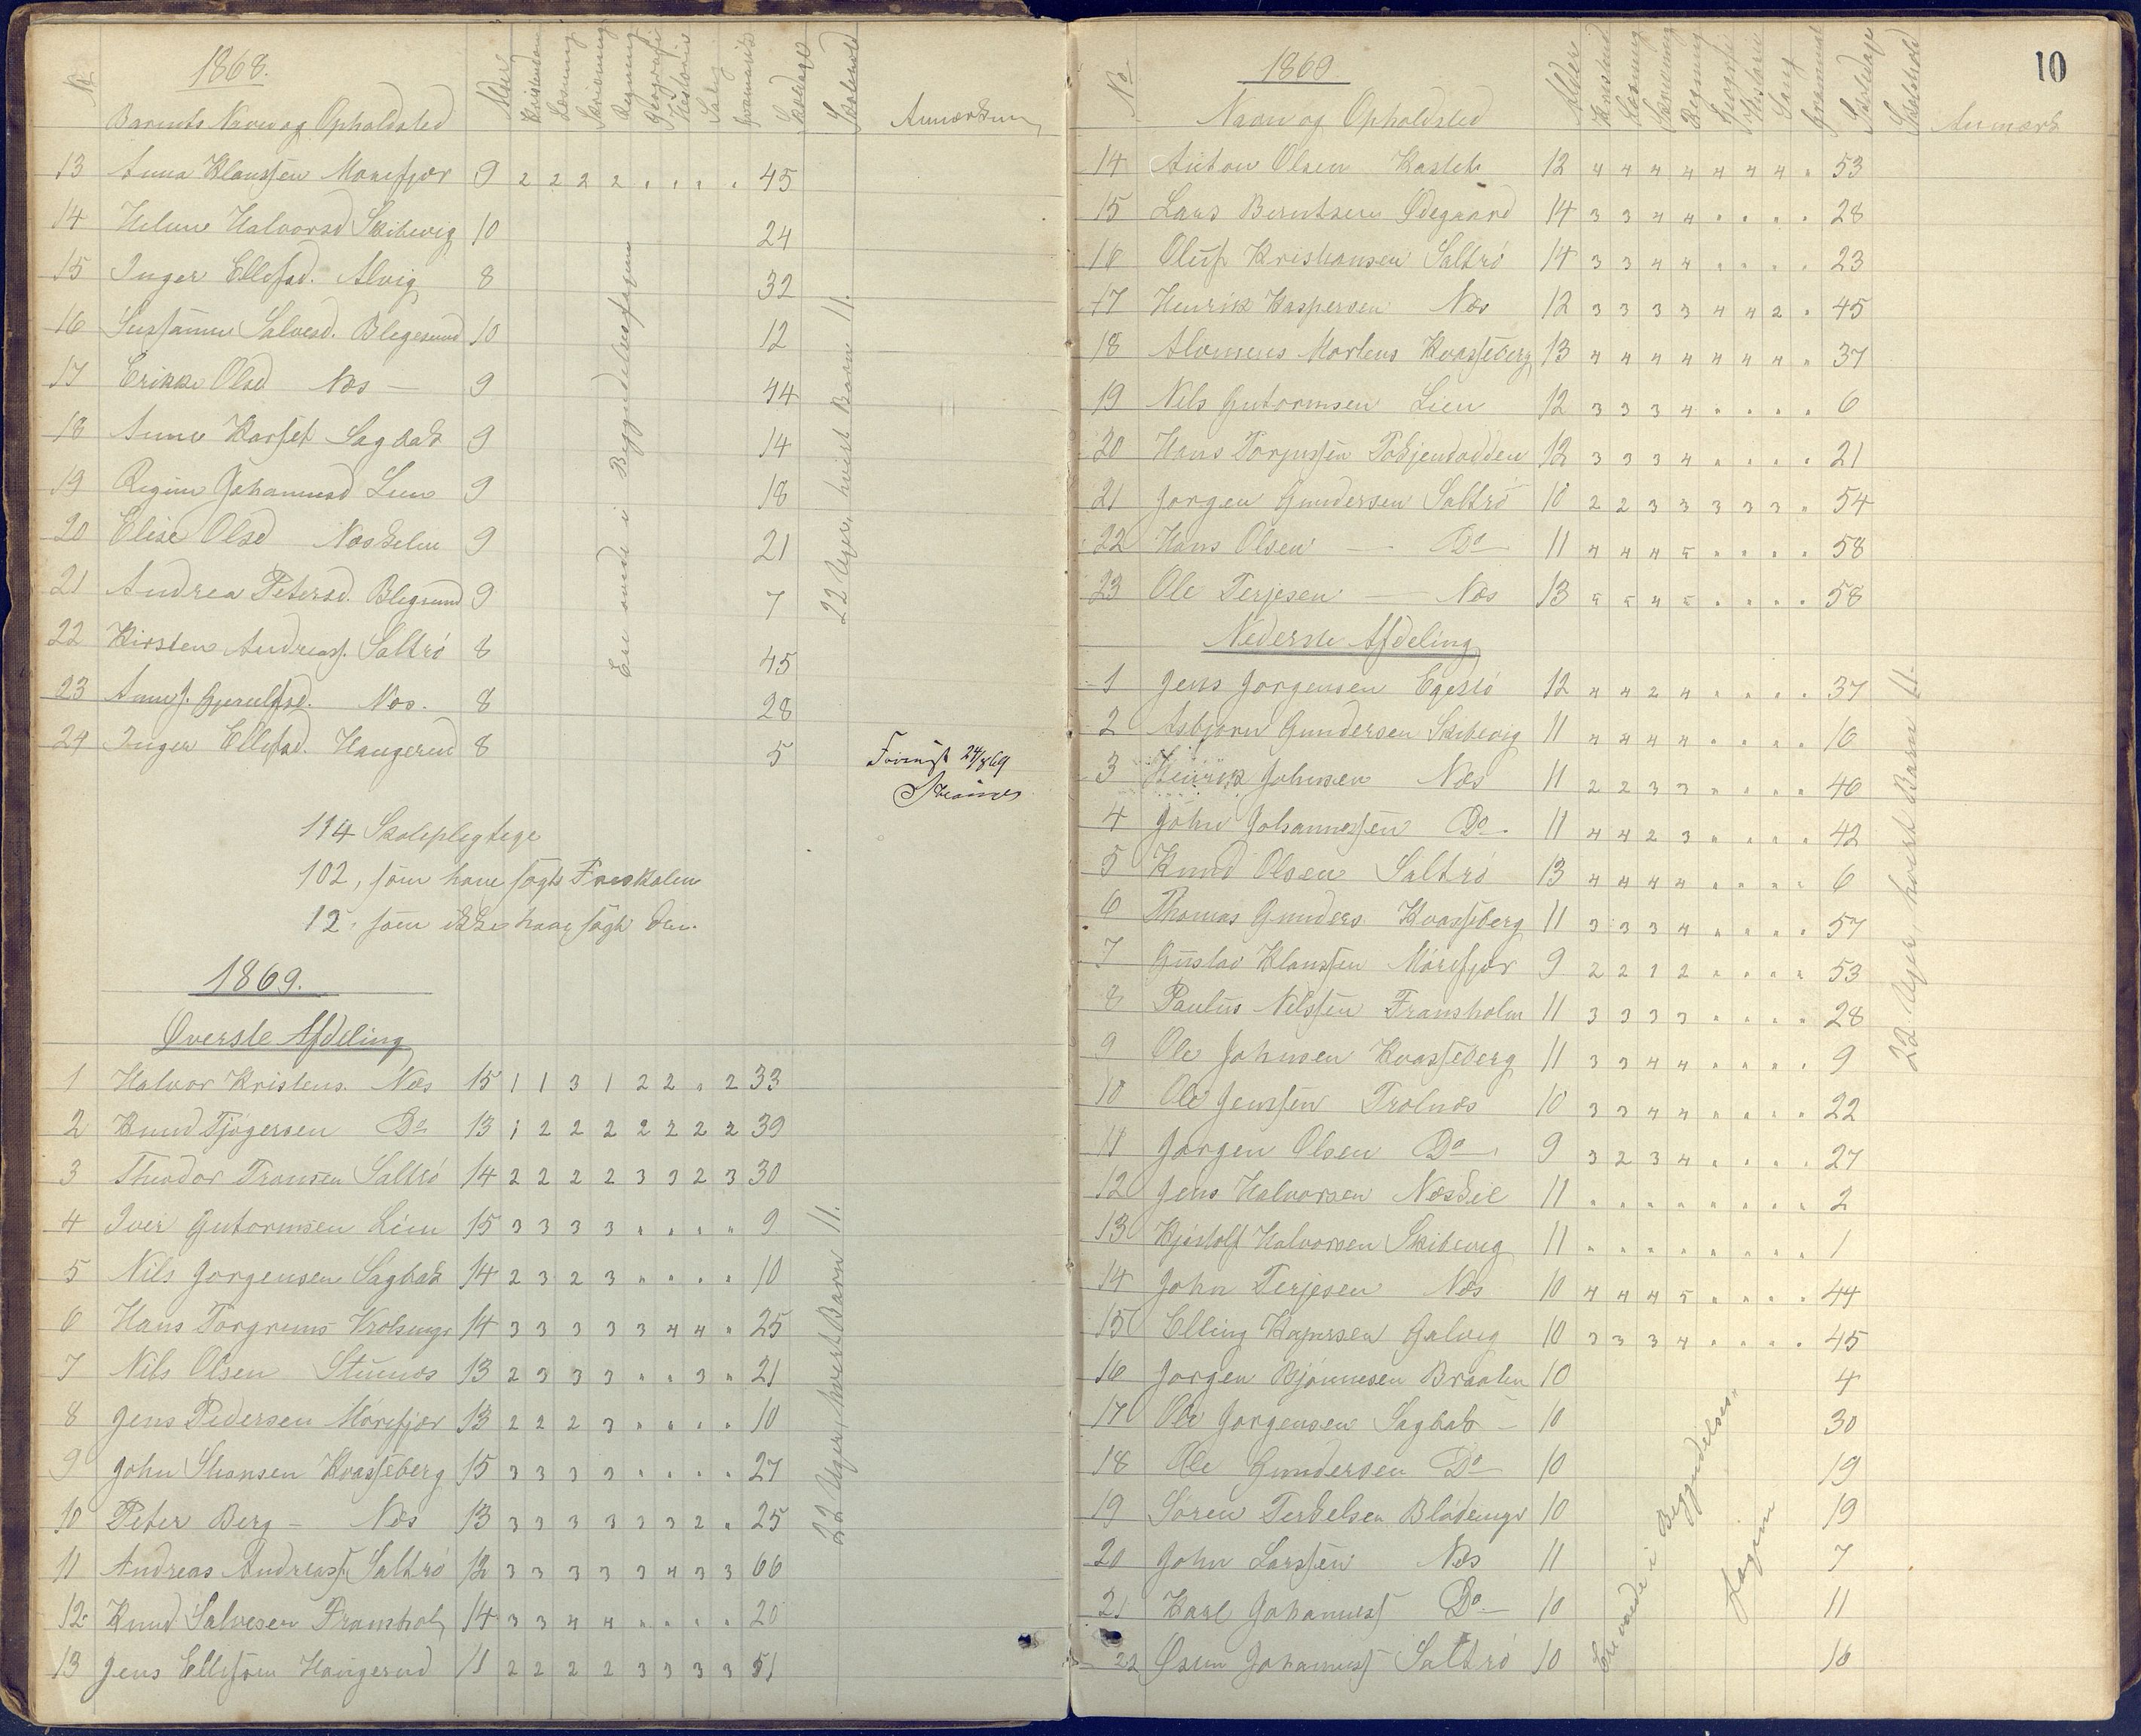 1868.
No Barnets Navn og Opholdsted Alder Kristendom Læsning Skrivning Regning Geografi Historie Sang Grammatik Skoledage Skolehold Anmærkning
13 Anna Klaussen Morefjær 9 2 2 2 2 " " " " 45
14 Helene Halvorsd Skibevig 10 24
15 Inger Ellefsd. Alvig 8 32
16 Sussanne Salvesd. Blegesund 10 12
17 Erikke Olsd Næs — 9 44
18 Anne Karset Sagbak 9 14
19 Regine Johannesd Lien 9 18
20 Elise Olsd Næskilen 9 21
21 Andrea Petersd. Blegsund 9 7
22 Kirsten Andreasf. Saltrö 8 45
23 Anne Næs. 8 28
24 Inger Ellefsd. Haugerud 8 5
Ere endnu i Begyndelsesfagene
22 Uger, hvert Barn 11.
Forevist 24/8 69
114 Skolepligtige
102, som have søgt Fasskolen
12, som ikke have søgt den.
1869.
Øverste Afdeling
1 Halvor Kristens. Næs 15 1 1 3 1 2 2 " 2 33
2 Knud Tjögersen Do 13 1 2 2 2 2 2 2 2 39
3 Theodor Fransen Saltrö 14 2 2 2 2 3 3 2 3 30
4 Iver Gutormsen Lien 15 3 3 3 3 " " " " 9
5 Nils Jorgensen Sagbak 14 2 3 2 3 " " " " 10
6 Hans Torgrims 14 3 3 3 3 3 4 4 " 25
7 Nils Olsen Stuenes 13 2 3 3 3 " " 3 " 21
8 Jens Pedersen Mörefjær 13 2 2 2 3 " " " " 10
9 John Hansen Kvasseberg 15 3 3 3 3 " " " " 27
10 Peter Berg — Næs 13 3 3 3 3 3 3 2 " 25
11 Andreas Andreasf. Saltrö 12 3 3 3 3 3 4 3 3 66
12 Knud Salvesen Framhol 14 3 3 4 4 " " " " 20
13 Jens Ellefsøn Haugerud 11 2 2 2 2 3 3 3 3 51
22 Uger, hvert Barn 11.
10
1869
No Navn og Opholdsted Alder Kristend Læsning Skrivning Regning Geografi Historie Sang Grammat Skoledage Skolehold Anmærk
14 Anton Olsen Kasteli 12 4 4 4 4 4 4 4 " 53
15 Lars Berntsen Ødegaard 14 3 3 4 4 " " " " 28
16 Oluf Kristiansen Saltrö 14 3 3 4 4 " " " " 23
17 Henrik Kaspersen Næs 12 3 3 3 3 4 4 2 " 45
18 Martens Kvasseberg 13 4 4 4 4 4 4 4 " 37
19 Nils Gutormsen Lien 12 3 3 3 4 " " " " 6
20 Hans Torjussen 12 3 3 3 4 " " " " 21
21 Jorgen Gundersen Saltrö 10 2 2 3 3 3 3 3 " 54
22 Hans Olsen — Do 11 4 4 4 5 " " " " 58
23 Ole Terjesen — Næs 13 5 5 4 5 " " " " 58
Nederste Afdeling
1 Jens Jorgensen 12 4 4 2 4 " " " " 37
2 Asbjorn Gundersen Skibevig 11 4 4 4 4 " " " " 16
3 Henrik Johnsen Næs 11 2 2 3 3 " " " " 46
4 John Johannessen Do. 11 4 4 2 3 " " " " 42
5 Knud Olsen Saltrö 13 4 4 4 4 " " " " 6
6 Thomas Gunders Kvasseberg 11 3 3 3 4 " " " " 57
7 Gustav Klaussen Mörefjær 9 2 2 1 2 " " " " 53
8 Paulus Nilssen Framsholm 11 3 3 3 3 " " " " 28
9 Ole Johnsen Kvasseberg 11 3 3 4 4 " " " " 9
10 Ole Jenssen Trolnæs 10 3 3 4 4 " " " " 22
11 Jorgen Olsen Do 9 3 2 3 4 " " " " 27
12 Jens Halvorsen Næskil 11 " " " " " " " " 2
13 Kjöstolf Halvorsen Skibevig 11 " " " " " " " " 1
14 John Terjesen Næs 10 4 4 4 5 " " " " 44
15 Elling Kaspersen Galvig 10 3 3 3 4 " " " " 45
16 Jorgen Bjönnesen Braaten 10 4
17 Ole Jorgensen Sagbak — 10 30
18 Ole Gundersen Do 10 19
19 Sören Terkelsen 10 19
20 John Larssen Næs 11 7
21 Karl Johannesf Do. 10 11
22 Johannesf Saltrö 10 16
Ere endnu i Begyndelses-
fagene
22 Uger, hvert Barn 11.